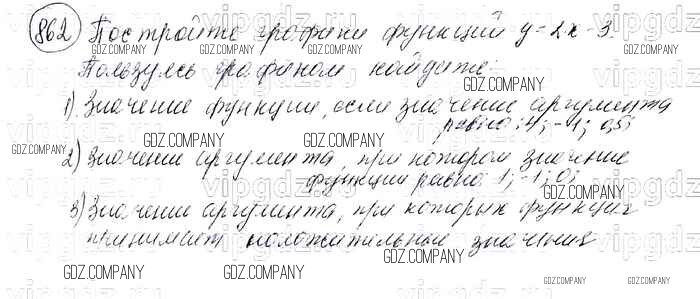 862 Постройте графики функций y=2x-3.
Пользуясь графиком найдите:
1) Значение функции, если значение аргумента
равно: 4; -1; 0,5;
2) Значение аргумента, при котором значение
функции равно: 1; -1; 0;
3) Значение аргумента, при которых функция
принимает положительные значения
GDZ.COMPANY
vipgdz.ru